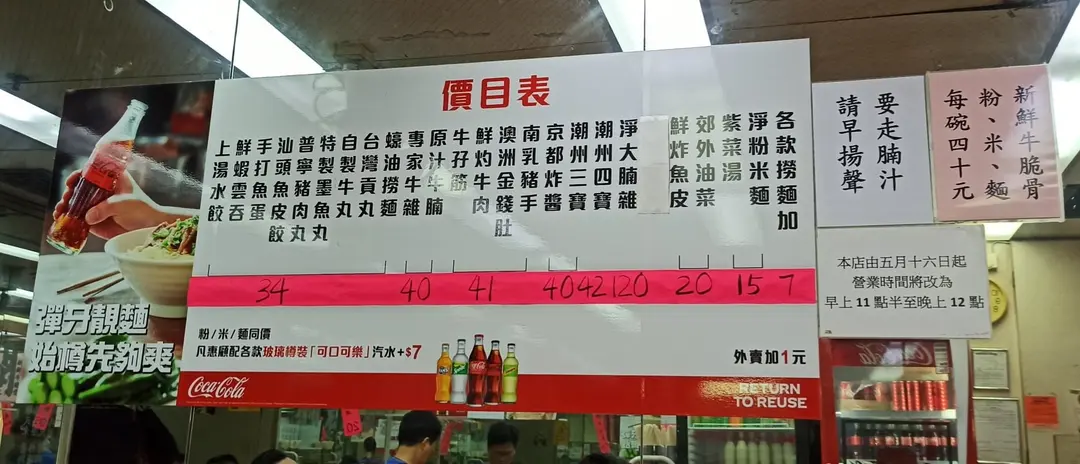 價目表
各款撈麵加
淨粉米麵
紫菜湯
郊外油菜
鮮炸魚皮
淨大腩雜
潮州四寶
潮州三寶
京都炸醬
南乳豬手
澳洲金錢肚
鮮灼牛肉
牛孖筋
原汁牛腩
專家牛雜
蠔油撈麵
台灣貢丸
自製牛丸
特製墨魚丸
普寧豬肉丸
汕頭魚皮餃
手打魚蛋
鮮蝦雲吞
上湯水餃
34 40 41 40 42 120 20 15 7
粉/米/麵同價
凡惠顧配各款玻璃樽裝「可口可樂」汽水+$7
外賣加1元
Coca-Cola
RETURN
TO REUSE
彈牙靚麵
始樽先夠爽
要走腩汁
請早揚聲
新鮮牛脆骨
粉、米、麵
每碗四十元
本店由五月十六日起
營業時間將改為
早上11點半至晚上12點